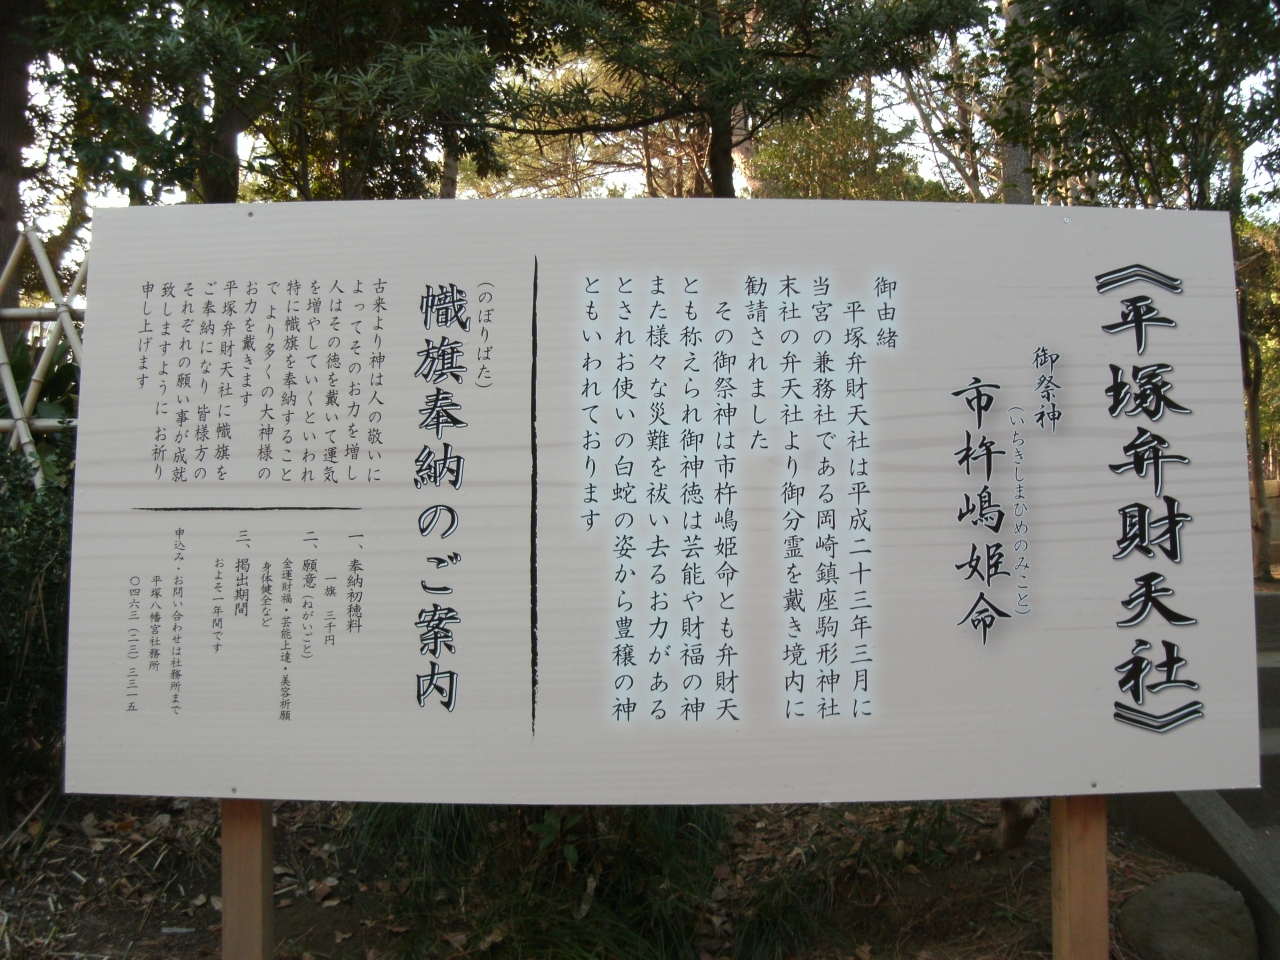 《平塚弁財天社》
御祭神
市杵嶋姫命
(いちきしまひめのみこと)
御由緒
平塚弁財天社は平成二十三年三月に
当宮の兼務社である岡崎鎮座駒形神社
末社の弁天社より御分霊を戴き境内に
勧請されました
その御祭神は市杵嶋姫命とも弁財天
とも称えられ御神徳は芸能や財福の神
また様々な災難を祓い去るお力がある
とされお使いの白蛇の姿から豊穣の神
ともいわれております
(のぼりばた)
幟旗奉納のご案内
古来より神は人の敬いに
よってそのお力を増し
人はその徳を戴いて運気
を増やしていくといわれ
特に幟旗を奉納すること
で より多くの大神様の
お力を戴きます
平塚弁財天社に幟旗を
ご奉納になり 皆様方の
それぞれの願い事が成就
致しますように お祈り
申し上げます
一、奉納初穂料
一旗 三千円
二、願意(ねがいごと)
金運財福・芸能上達・美容祈願
身体健全など
三、掲出期間
およそ一年間です
申込み・お問い合わせは社務所まで
平塚八幡宮社務所
〇四六三(二三)三三一五